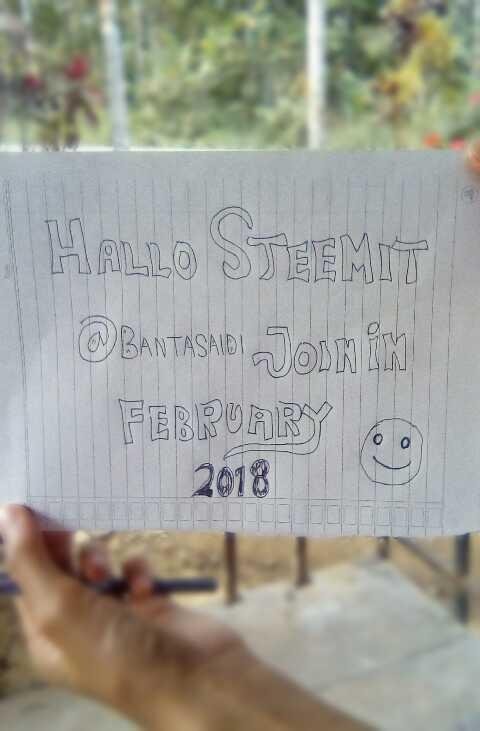 HALLO STEEMIT
@BANTASAIDI JOIN iN
FEBRUARY
2018